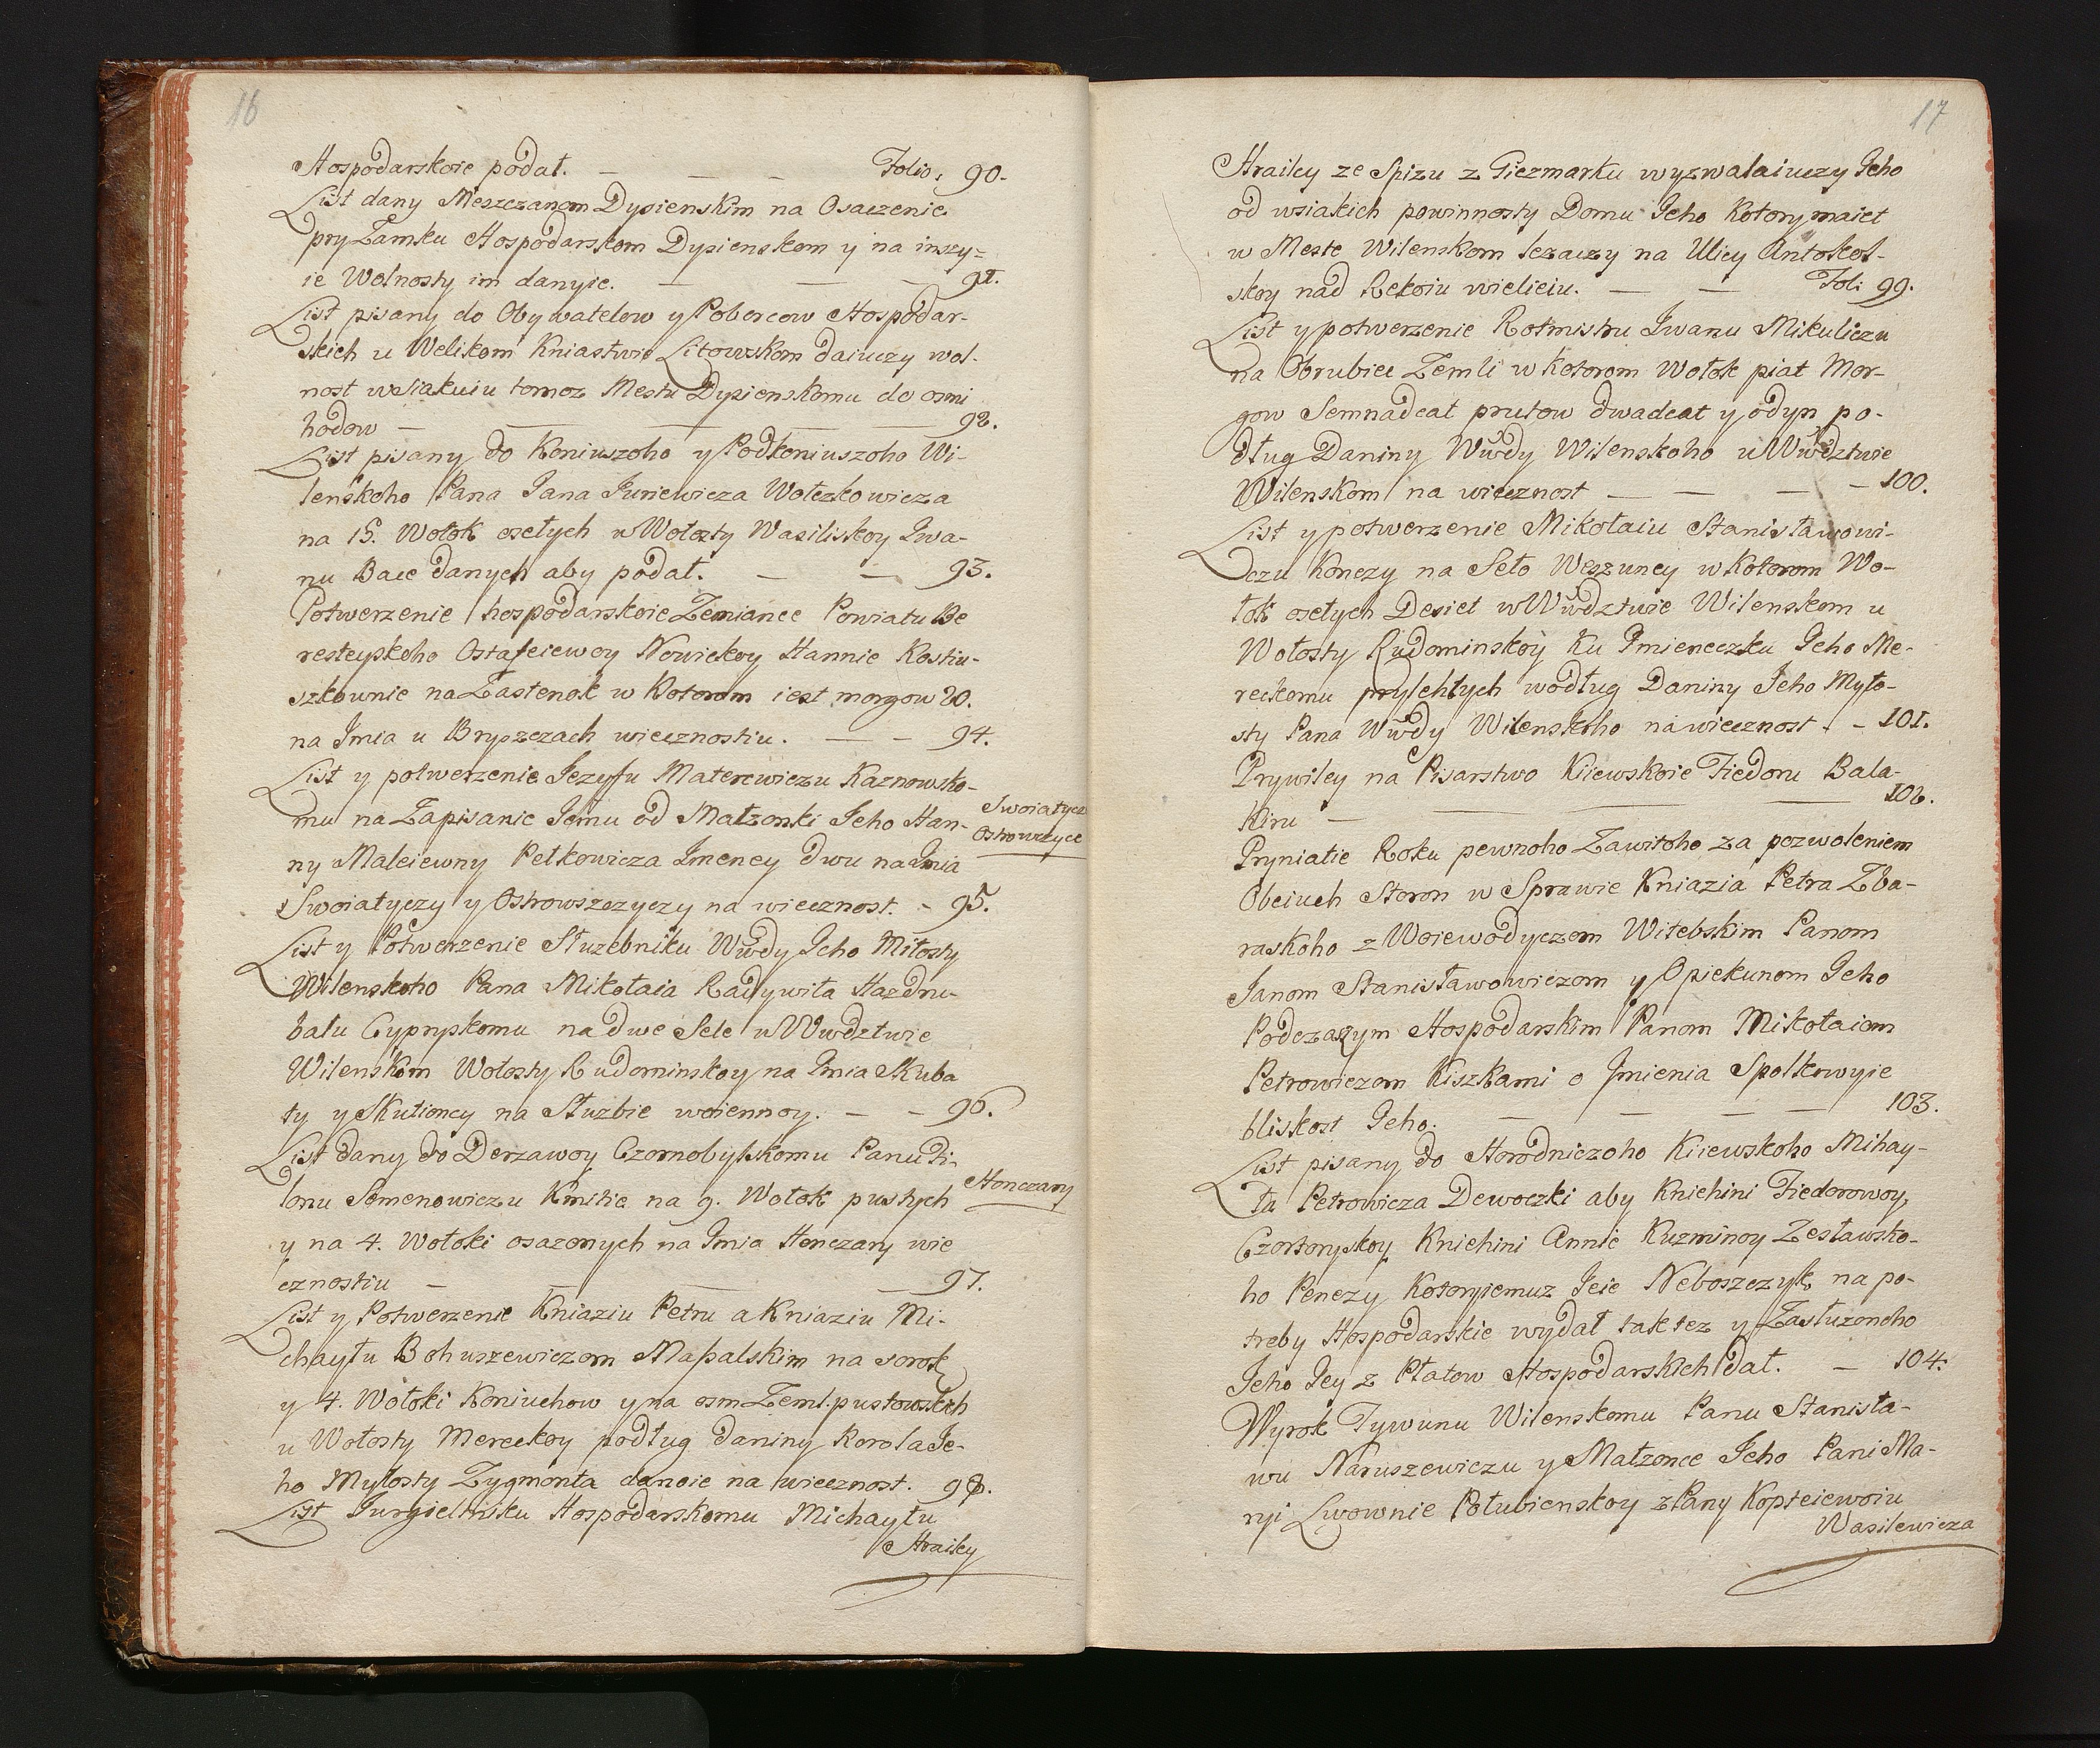 16
Hospodarskoie podał. — — — Folio: 90.
List dany Meszczanom Dysienskim na Osaczenie
pry Zamku Hospodarskom Dysienskom y na inszy=
ie Wolnosty im danyie. — — — 91.
List pisany do Obywatelow y Poborcow Hospodar-
skich u Welikom Kniastwie Litowskom daiuczy wol-
nost wsiakuiu tomoz Mestu Dysienskomu do osmi
hodow — — — — 92.
List pisany do Koniuszoho y Podkoniuszoho Wi-
lenskoho Pana Jana Juriewicza Wołczkowicza
na 15. Wołok osełych w Wołosty Wasiliskoy Iwa-
nu Bace danych aby podał. — — 93.
Potwerzenie hospodarskoie Zemiance Powiatu Be
resteyskoho Ostafeiewoy Nowickoy Hannie Kostiu-
szkownie na Zastenok w Kotorom iest morgow 20.
na Imia u Bryszczach wiecznostiu. — — 94.
List y potwerzenie Jezyfu Materewiczu Kaznowsko-
mu na Zapisanie Jemu od Małzonki Jeho Han-
Swoiatycze
Ostrowszyce
ny Maleiewny Petkowicza Imeney dwu na Imia
Swoiatyczy y Ostrowszczyczy na wiecznost. - 95.
List y Potwerzenie Słuzebniku Wwdy Jeho Miłosty
Wilenskoho Pana Mikołaia Radywiła Hazdru-
bału Cypryskomu na dwe Sele u Wwdztwie
Wilenskom Wołosty Rudominskoy na Imia Skuba
ty y Skutioncy na Słuzbie woiennoy. — — 96.
List dany do Derzawcy Czornobylskomu Panu Fi-
lonu Semenowiczu Kmitie na 9. Wołok pustych
Honczary
y na 4. Wołoki osazonych na Imia Honczary wie
cznostiu — — — — 97.
List y Potwerzenie Kniaziu Petru a Kniaziu Mi-
chayłu Bohuszewiczom Masalskim na sorok
y 4. Wołoki Koniuchow y na osm Zeml. pustowskich
u Wołosty Mereckoy podług daniny Korola Je-
ho Myłosty Zygmonta danoie na wiecznost. 98.
List Jurgieltniku Hospodarskomu Michayłu
Hrailey
17
Hrailey ze Spizu z Giezmarku wyzwalaiuczy Jeho
od wsiakich powinnosty Domu Jeho Kotory maiet
w Meste Wilenskom lezaczy na Ulicy Antokol-
skoy nad Rekoiu wielieiu. — — Fol: 99.
List y potwerzenie Rotmistru Iwanu Mikuliczu
na Obrubiec Zemli w Kotorom Wołok piat Mor-
gow Semnadcat prutow dwadcat y odyn po-
dług Daniny Wwdy Wilenskoho u Wwdztwie
Wilenskom na wiecznost — — — — 100.
List y potwerzenie Mikołaiu Stanisławowi-
czu Konczy na Seło Weszuncy w Kotorom Wo-
łok osełych Desiet w Wwdztwie Wilenskom u
Wołosty Rudominskoy Ku Imieneczku Jeho Me-
reckomu pryłehłych wodług Daniny Jeho Myło-
sty Pana Wwdy Wilenskoho na wiecznost. - 101.
Prywiley na Pisarstwo Kiiewskoie Fiedoru Bala-
kiru — — — 102.
Pryniatie Roku pewnoho Zawitoho za pozwoleniem
Obeiuch Storon w Sprawie Kniazia Petra Zba-
raskoho z Woiewodyczem Witebskim Panom
Janom Stanisławowiczom y Opiekunom Jeho
Podczaszym Hospodarskim Panom Mikołaiom
Petrowiczom Kiszkami o Imienia Spolkowyie
bliskost Jeho. — — — — 103.
List pisany do Horodniczoho Kiiewskoho Mihay-
ła Petrowicza Dewoczki aby Kniehini Fiedorowoy
Czortoryskoy Kniehini Annie Kuzminoy Zesławsko-
ho Penezy Kotoryiemuz Jeie Neboszczyk na po-
treby Hospodarskie wydał taktez y Zasłuzonoho
Jeho Jey z Płatow Hospodarskich dał. — 104.
Wyrok Tywunu Wilenskomu Panu Stanisła-
wu Naruszewiczu y Małzonce Jeho Pani Ma-
ryi Lwownie Połubienskoy z Pany Kopteiewoiu
Wasilewicza